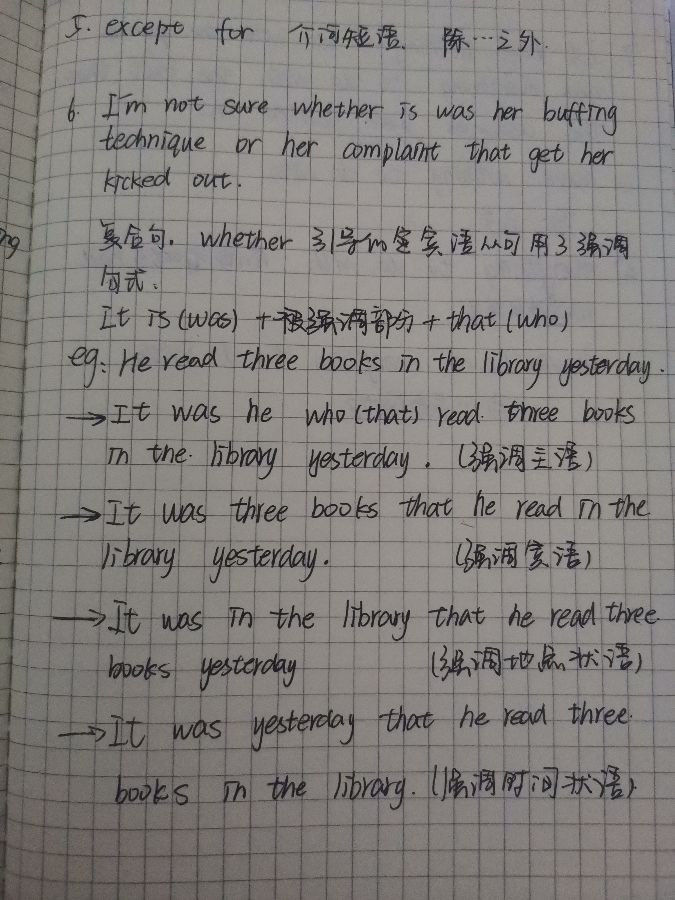 5. except for 介词短语. 除…之外.
6. I'm not sure whether is was her buffing
technique or her complaint that get her
kicked out.
复合句. whether 引导的宾语从句用了强调
句式.
It is (was) + 被强调部分 + that (who)
eg: He read three books in the library yesterday.
→ It was he who (that) read three books
in the library yesterday. (强调主语)
→ It was three books that he read in the
library yesterday. (强调宾语)
→ It was in the library that he read three
books yesterday (强调地点状语)
→ It was yesterday that he read three
books in the library. (强调时间状语)